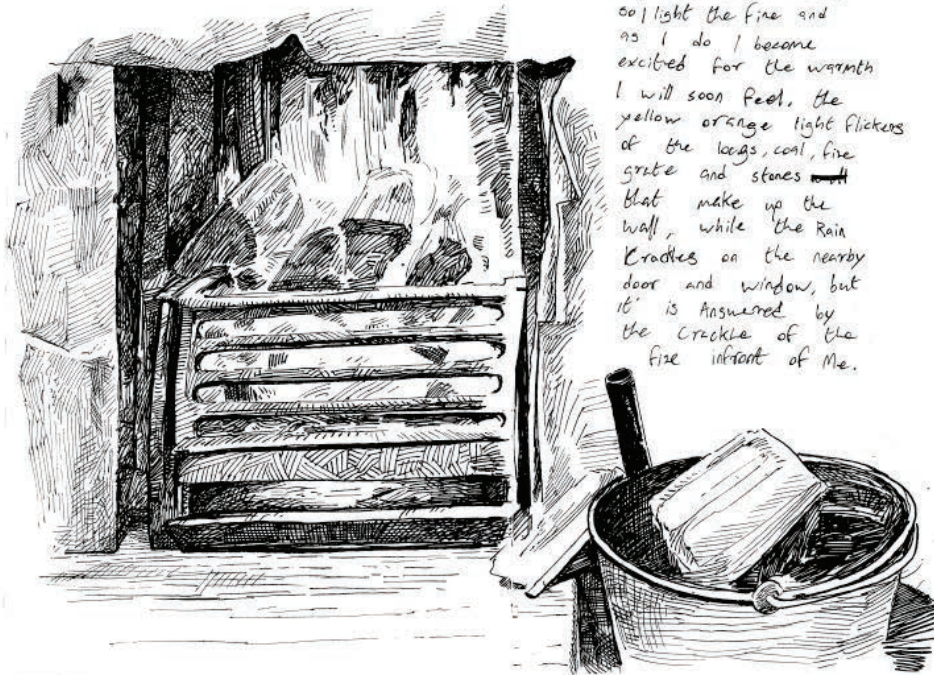 so I light the fire and
as I do I become
excitred for the warmth
I will soon feel. the
yellow orange light flickers
of the logs, coal, fire
grate and stones
that make up the
wall, while the Rain
Cradles on the nearby
door and window, but
it is Answered by
the Crackle of the
fire infront of Me.